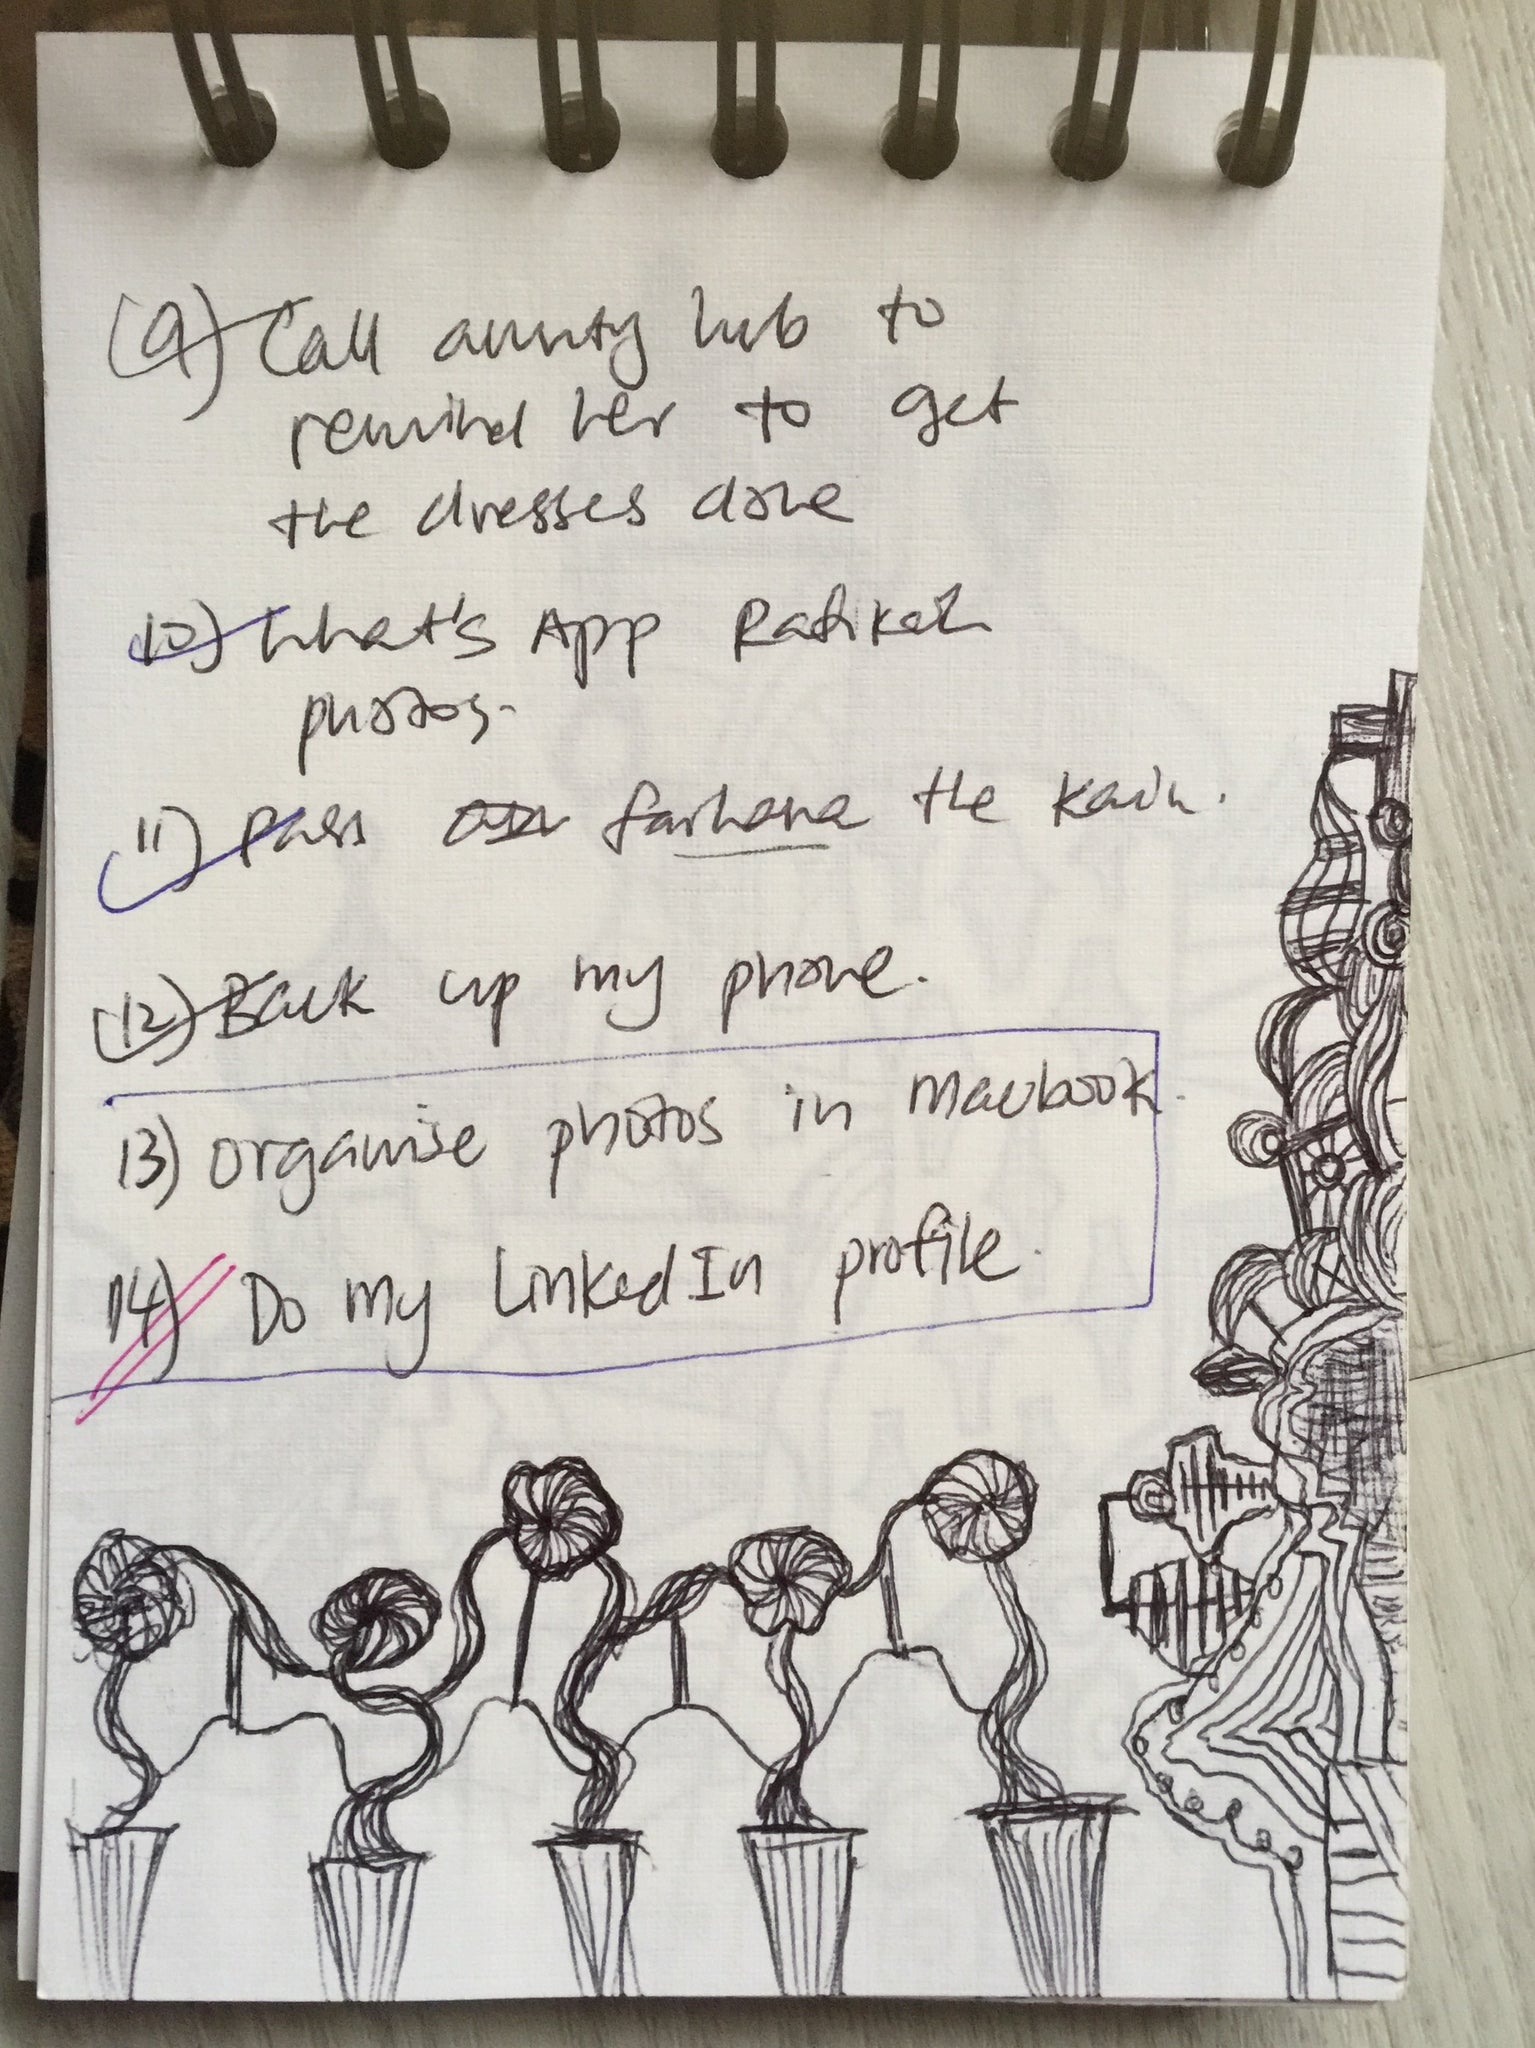 9) Call aunty hub to
remind her to get
the dresses done
10) What's App Rafikah
photos.
11) Pass farhana the kain.
12) Back up my phone.
13) organise photos in macbook.
14) Do my LinkedIn profile.